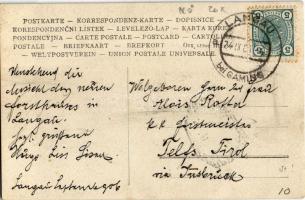 POSTKARTE – KORRESPONDENZ-KARTE – DOPISNICE
KORRESPONDENČNI LISTEK – LEVELEZŐ-LAP – KARTA KORES-
PONDENCYJNA – CARTE POSTALE – POSTCARD – CARTOLINA
POSTALE – BRIEFKAART – BREFKORT
– WELTPOSTVEREIN – UNION POSTALE UNIVERSELLE –
LANGAU
24 IX 06
b. GAMING
5
5
Übersendung die
Ansicht des neuen
Forsthauses in
Langau.
Langau September 906
Wohlgeboren Herrn
Alois Rotter
k.k. Forstmeister
Telfs Tirol
via Innsbruck
10